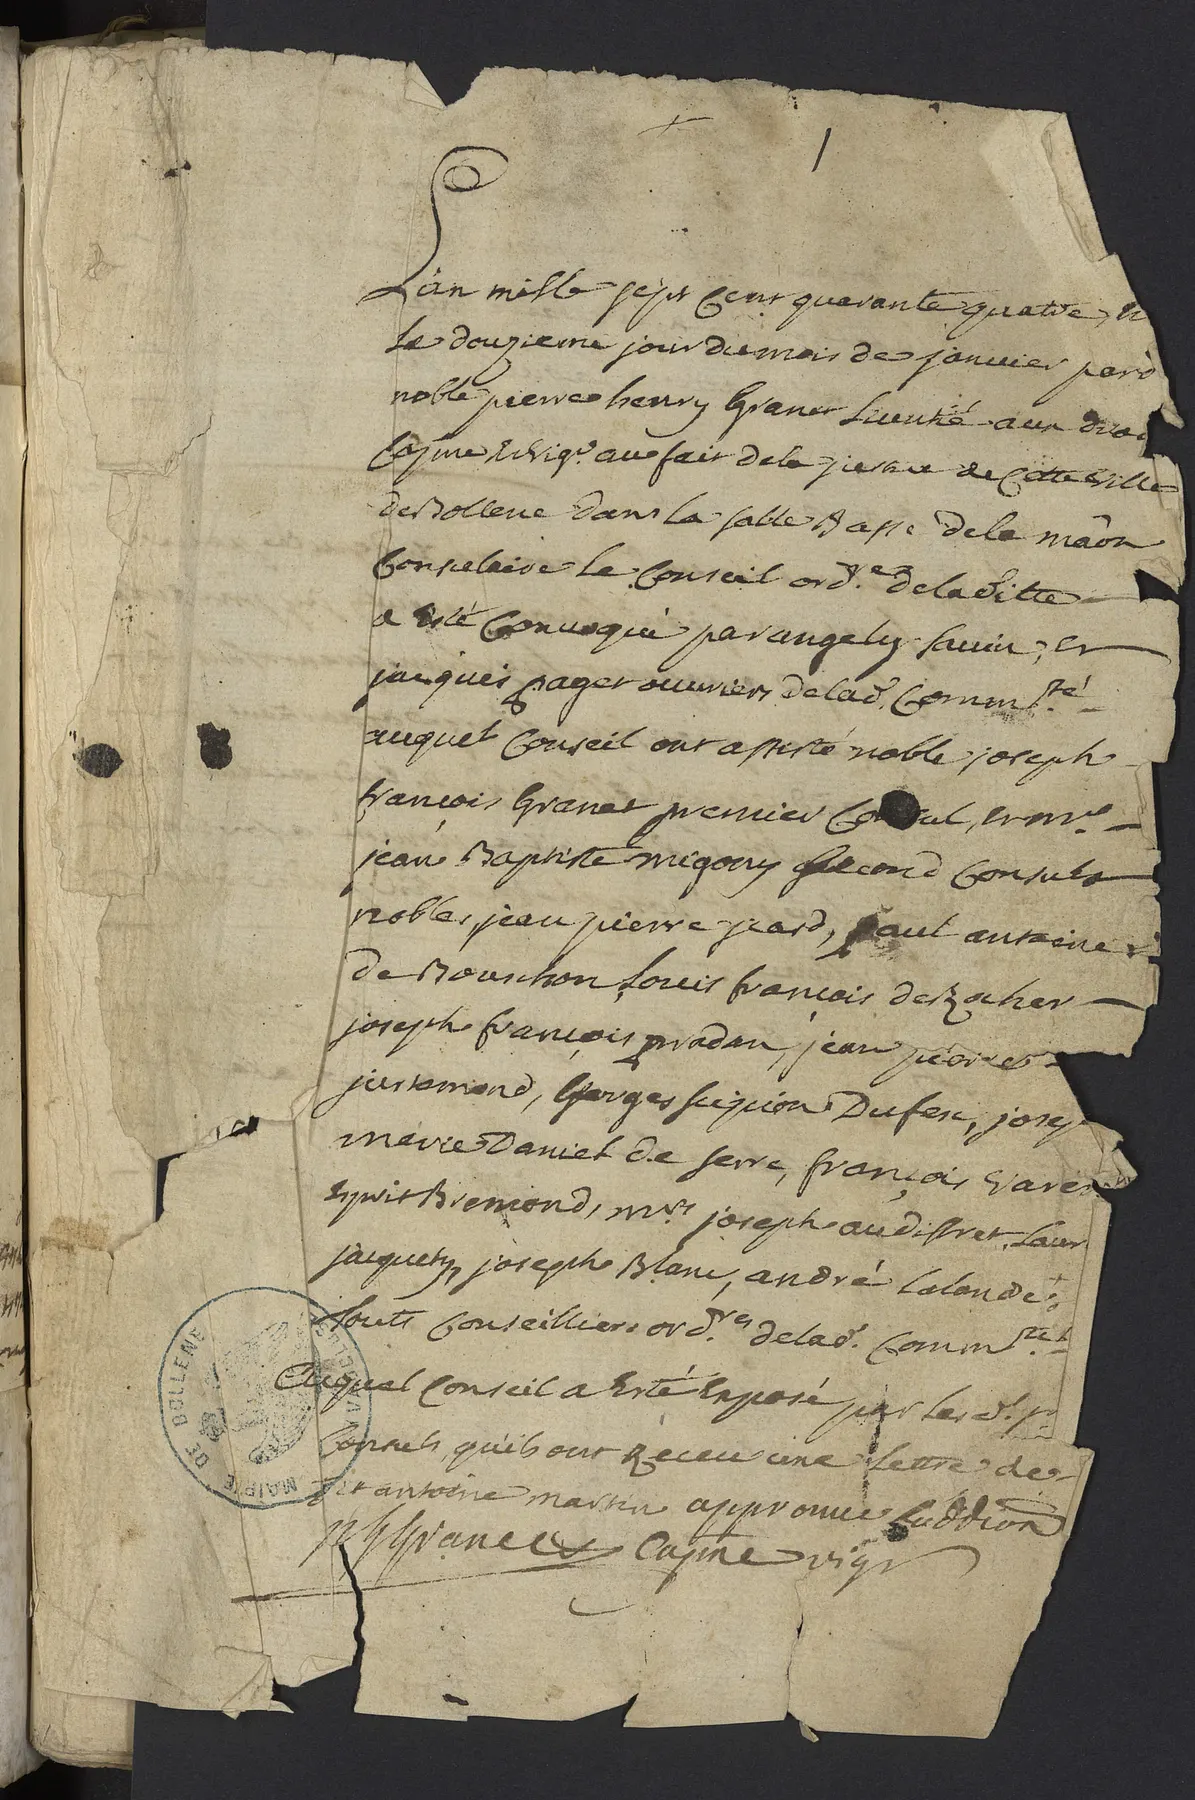 1
L'an mille sept Cent quarante quatre, Et
le douzieme jour du mois de janvier pard
noble pierre henry Granet Licentié aux droi
Capne Et Vigr. au fait de la justice de Cette Ville
de Bollene dans la salle Basse de la maôn
Consulaire le Conseil ord.re de laditte
a Esté Convoqué par angely sauin, Et
jacques pager ouvriers de lad. Comm.té
auquel Conseil ont assisté noble joseph
françois Granet premier Consul, Et mre.
jean Baptiste migony second Consuls
nobles, jean pierre , paul antoine
de Bouchon, Louis françois de Rocher
joseph françois pradan, jean pierre
justamond, Georges scipion Dufesc, josep
marie Daniel de serre, françois
Esprit Bremond, mrs. joseph audiffret, Laur
jacquety, joseph Blanc, andré Lalande
touts Conseilliers ord.res de lad. Comm.té
Auquel Conseil a Esté Exposé par les d.
Consuls, qu'ils ont Receu une Lettre de
antoine martin approuvé
p h Granet Capne vigr
MAIRIE DE BOLLENE VAUCLUSE